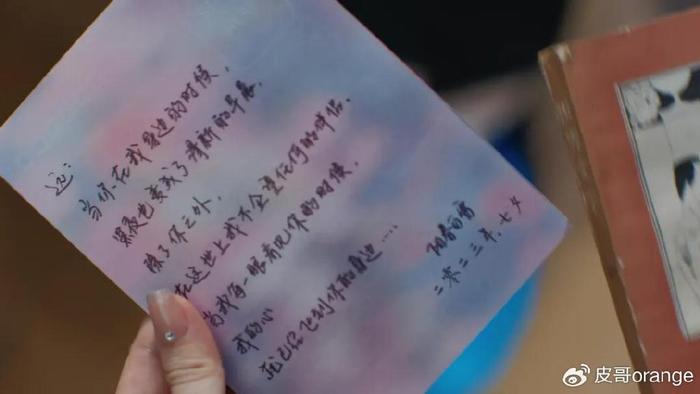 当你在我身边的时候，
黑夜也变成了清新的早晨。
除了你之外，
在这世上我不企望任何的伴侣。
当我第一眼看见你的时候，
我的心
就已经飞到你的身边....
二零二三年.七夕
皮哥orange